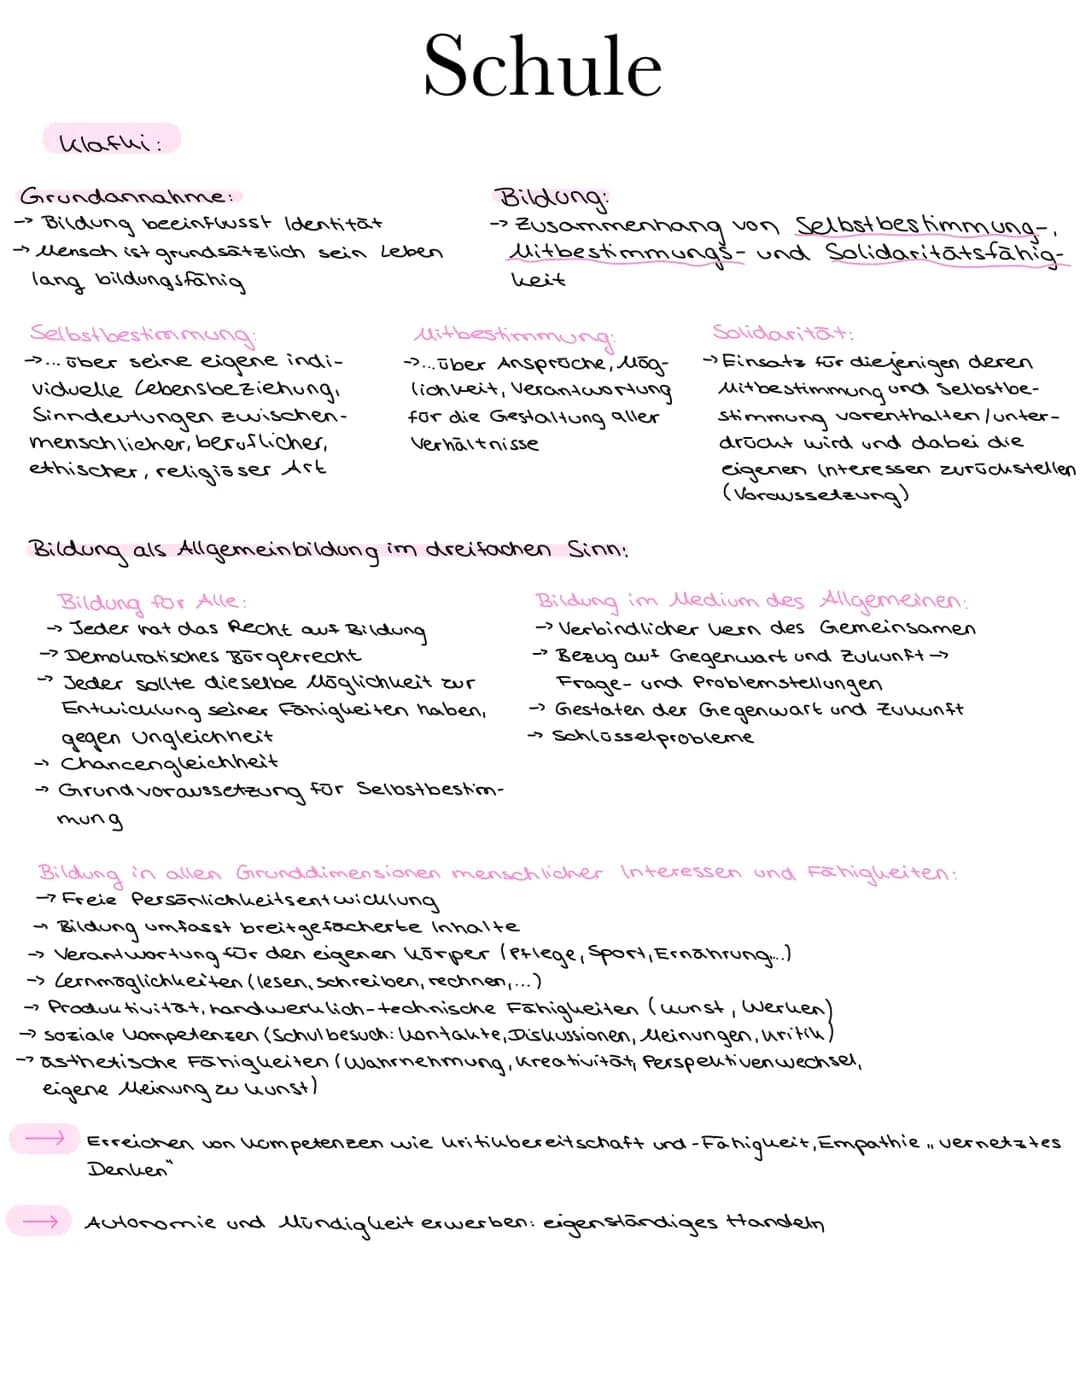 Schule
Klafki:
Grundannahme:
→ Bildung beeinflusst Identität
→ Mensch ist grundsätzlich sein Leben
lang bildungsfähig
Bildung:
→ Zusammenhang von Selbstbestimmung-,
Mitbestimmungs- und Solidaritätsfähig-
keit
Selbstbestimmung:
→... über seine eigene indi-
viduelle Lebensbeziehung,
Sinndeutungen zwischen-
menschlicher, beruflicher,
ethischer, religiöser Art
Mitbestimmung:
→...über Ansprüche, Mög-
lichkeit, Verantwortung
für die Gestaltung aller
Verhältnisse
Solidarität:
→ Einsatz für diejenigen deren
Mitbestimmung und Selbstbe-
stimmung vorenthalten/unter-
drückt wird und dabei die
eigenen Interessen zurückstellen
(Voraussetzung)
Bildung als Allgemeinbildung im dreifachen Sinn:
Bildung für Alle:
→ Jeder hat das Recht auf Bildung
→ Demokratisches Bürgerrecht
→ Jeder sollte dieselbe Möglichkeit zur
Entwicklung seiner Fähigkeiten haben,
gegen Ungleichheit
→ Chancengleichheit
→ Grundvoraussetzung für Selbstbestim-
mung
Bildung im Medium des Allgemeinen:
→ Verbindlicher Kern des Gemeinsamen
→ Bezug auf Gegenwart und Zukunft →
Frage- und Problemstellungen
→ Gestaten der Gegenwart und Zukunft
→ Schlüsselprobleme
Bildung in allen Grunddimensionen menschlicher Interessen und Fähigkeiten:
→ Freie Persönlichkeitsentwicklung
→ Bildung umfasst breitgefächerte Inhalte
→ Verantwortung für den eigenen Körper (Pflege, Sport, Ernährung...)
→ Lernmöglichkeiten (lesen, schreiben, rechnen,...)
→ Produktivität, handwerklich-technische Fähigkeiten (Kunst, Werken)
→ soziale Kompetenzen (Schulbesuch: Kontakte, Diskussionen, Meinungen, Kritik)
→ ästhetische Fähigkeiten (Wahrnehmung, Kreativität, Perspektivenwechsel,
eigene Meinung zu Kunst)
→ Erreichen von Kompetenzen wie Kritikbereitschaft und -Fähigkeit, Empathie „vernetztes
Denken“
→ Autonomie und Mündigkeit erwerben: eigenständiges Handeln